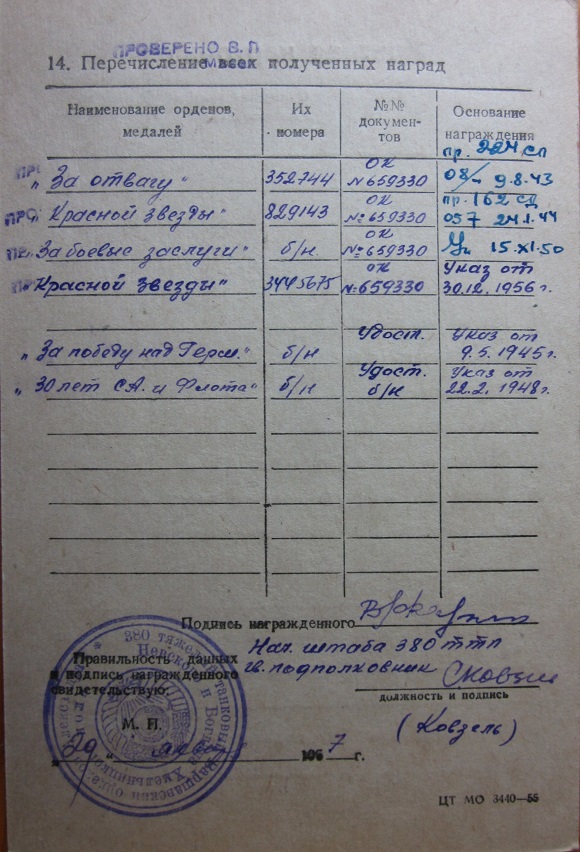 ПРОВЕРЕНО В. П
14. Перечисление всех полученных наград
Наименование орденов, медалей
Их номера
№№ документов
Основание награждения
„За отвагу“ 352744 ОК №659330 пр. 224 СП 08/ 9.8.43
„Красной Звезды“ 829143 ОК №659330 пр. 162 СД 057 24.1.44
„За боевые заслуги“ б/н ОК №659330 15.XI.50
„Красной Звезды“ 3445675 ОК №659330 Указ от 30.12.1956 г.
„За победу над Герм.“ б/н Удост. Указ от 9.5.1945 г.
„30 лет СА. и Флота“ б/н Удост. б/н Указ от 22.2.1948 г.
Подпись награжденного
Правильность данных
и подпись награжденного
свидетельствую:
Нач. штаба 380 ттп
гв. подполковник
должность и подпись
(Ковзель)
М. П.
„29“ 1957 г.
380
ЦТ МО 3440—55